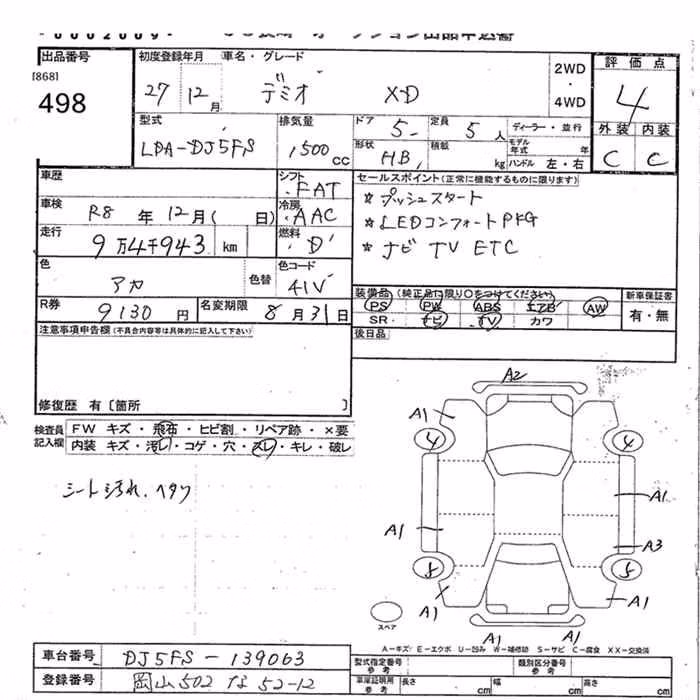 出品番号
[868]
498
初度登録年月 車名・グレード
27 12月 デミオ XD
2WD
・
4WD
評価点
4
外装 内装
C C
型式 排気量 ドア 定員 ディーラー・並行
LDA-DJ5FS 1500cc 5 5人
形状 積載 モデル年式 年
HB kg ハンドル 左・右
車歴 シフト FAT
車検 R8年12月( 日) 冷房 AAC
走行 9万4千943 km 燃料 D
色 アカ 色替 色コード 41V
R券 9130円 名変期限 8月31日
セールスポイント(正常に機能するものに限ります)
☆ プッシュスタート
☆ LEDコンフォートPKG
☆ ナビ TV ETC
装備品(純正品に限り○をつけてください) 新車保証書
PS PW ABS エアB AW 有・無
SR ナビ TV カワ
後日品
注意事項申告欄(不具合内容等は具体的に記入して下さい)
修復歴 有〔箇所 〕
検査員記入欄
FW キズ・飛石・ヒビ割・リペア跡・×要
内装 キズ・汚レ・コゲ・穴・スレ・キレ・破レ
シート汚れ、ヘタリ
A2
A1
4 4
A1
A1
A3
8 5
A1 A1
A1 A1
スペア
A－キズ E－エクボ U－凹み W－補修跡 S－サビ C－腐食 XX－交換済
車台番号 DJ5FS-139063
登録番号 岡山502 な 52-12
型式指定番号 参考 類別区分番号 参考
車庫証明用 参考 長さ cm 幅 cm 高さ cm